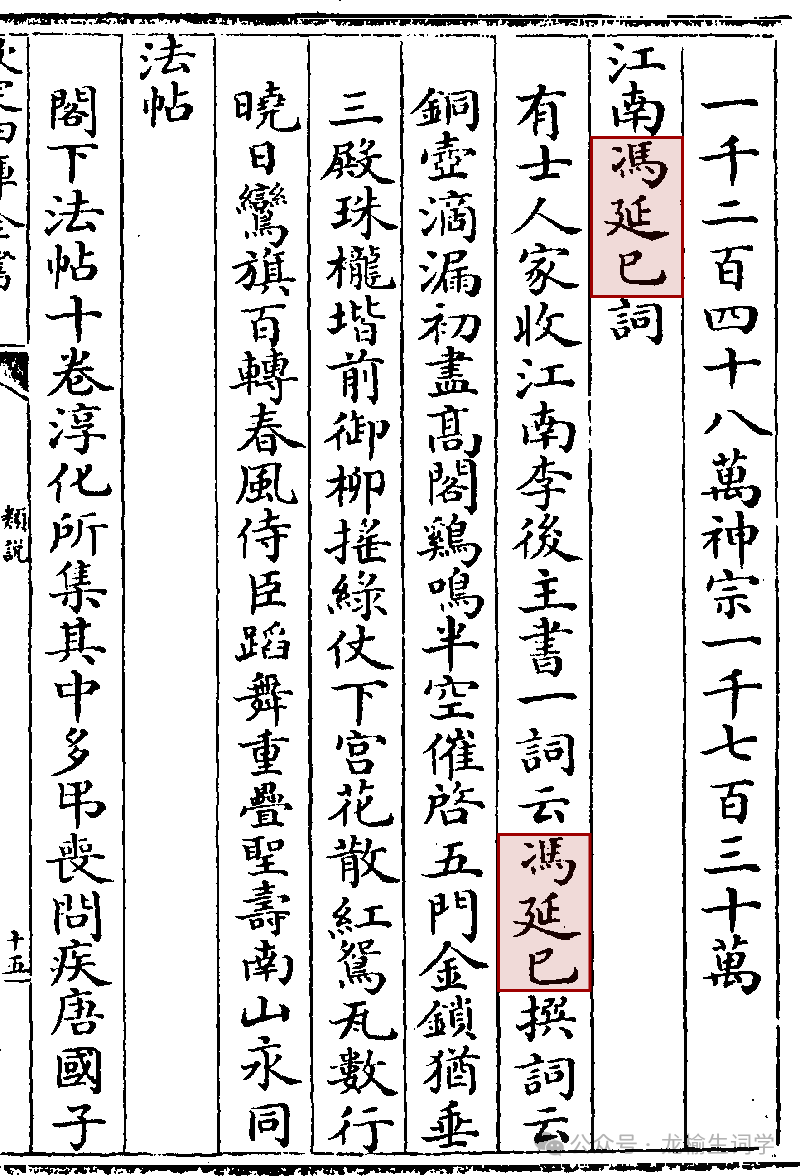 一千二百四十八萬神宗一千七百三十萬
江南馮延巳詞
有士人家收江南李後主書一詞云馮延巳撰詞云
銅壺滴漏初盡髙閣鷄鳴半空催啓五門金鎖猶垂
三殿珠櫳堦前御柳揺緑仗下宫花散紅鴛瓦數行
曉日鸞旗百轉春風侍臣蹈舞重疊聖壽南山永同
法帖
閣下法帖十卷淳化所集其中多弔喪問疾唐國子
欽定四庫全書
類説
十五
公众号·龙榆生词学